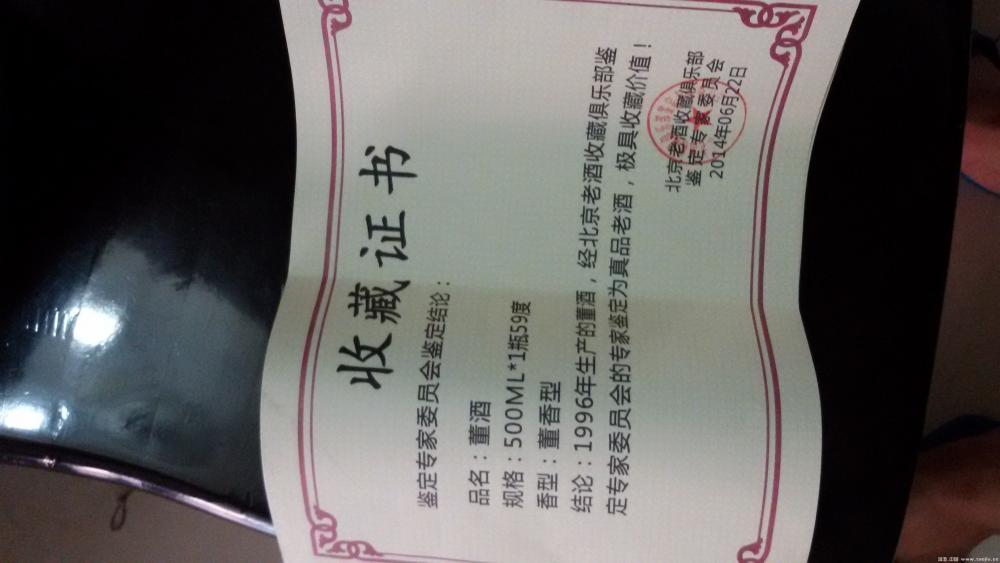 收藏证书
鉴定专家委员会鉴定结论：
品名：董酒
规格：500ML*1瓶59度
香型：董香型
结论：1996年生产的董酒，经北京老酒收藏俱乐部鉴
定专家委员会的专家鉴定为真品老酒，极具收藏价值！
北京老酒收藏俱乐部
鉴定专家委员会
2014年06月22日